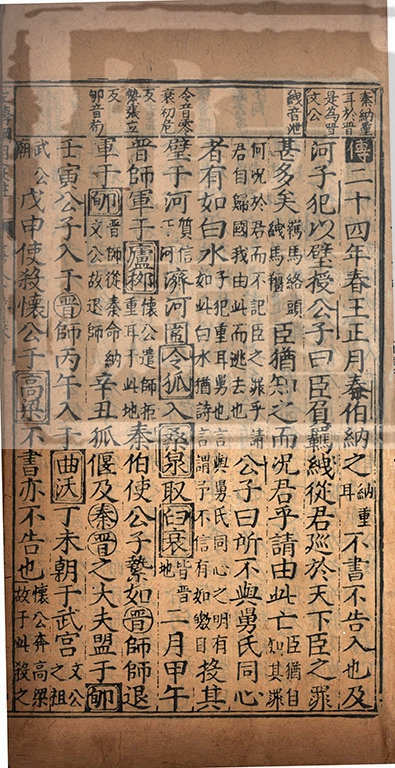 秦納重
耳於晉
是為晉
文公
紲音泄
令音零
衰初危
反
縶張立
反
郇音荀
傳二十四年春王正月秦伯納之納重耳不書不告入也及
河子犯以璧授公子曰臣負羈紲從君廵於天下臣之罪
甚多矣羈馬絡頭紲馬韁臣猶知之而况君乎請由此亡臣猶自知其罪
何况於君而不記臣之罪乎請君自歸國我由此而逃去也公子曰所不與舅氏同心
者有如白水子犯重耳舅也言與舅氏同心之明有如此白水猶詩言謂予不信有如皦日投其
璧于河質信于河濟河圍令狐入桑泉取臼衰皆晉地二月甲午
晉師軍于廬柳懷公遣師拒重耳于此地秦伯使公子縶如晉師師退
軍于郇晉師從秦命納文公故退師辛丑狐偃及秦晉之大夫盟于郇
壬寅公子入于晉師丙午入于曲沃丁未朝于武宮文公之祖
武公廟戊申使殺懷公于高梁不書亦不告也懷公奔高梁故于此殺之